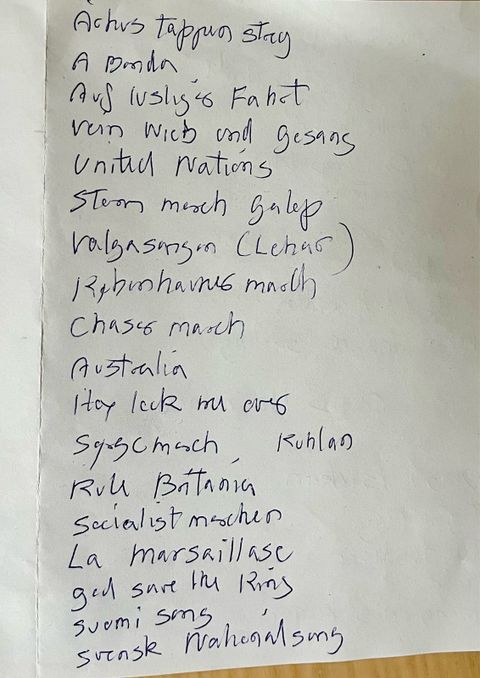 tappun stay
A Banda
Auf lustiger Fahrt
Wein Wieb und gesang
United Nations
Storm march galop
Valgasangen (Lehar)
Københavner march
Chaser march
Australia
Hay look me over
Sørgemarch Kuhlau
Rule Britania
Socialist marchen
La marsaillase
god save the King
suomi song
svensk Nationalsang